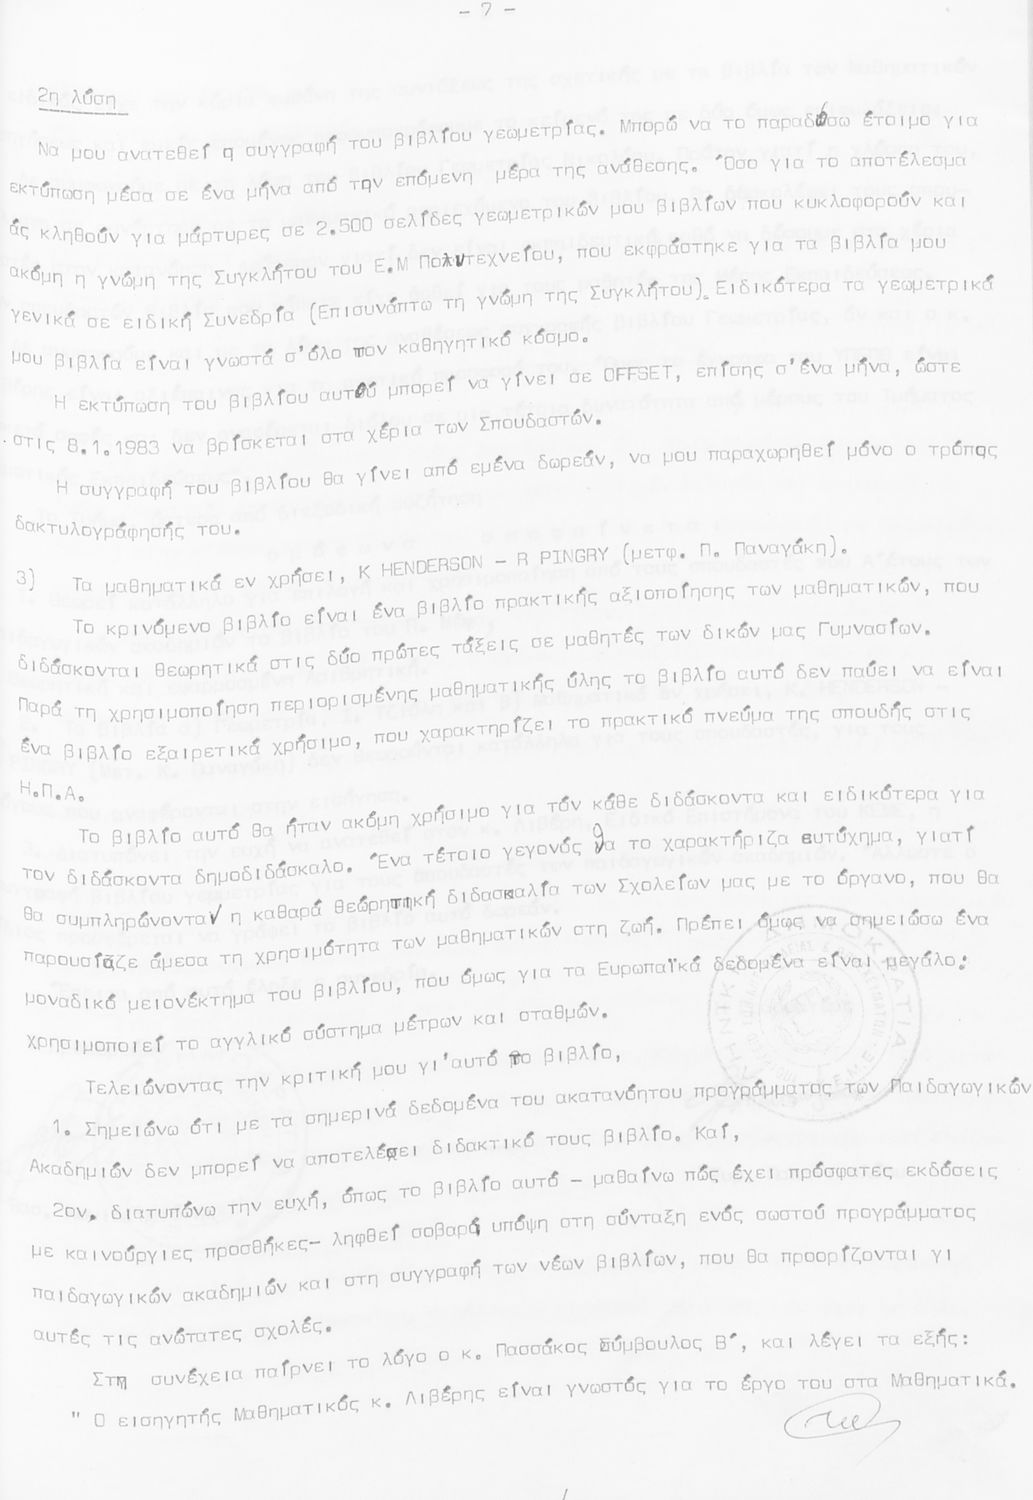 - 7 -
2η λύση
Να μου ανατεθεί η συγγραφή του βιβλίου γεωμετρίας. Μπορώ να το παραδώσω έτοιμο για
εκτύπωση μέσα σε ένα μήνα από την επόμενη μέρα της ανάθεσης. Όσο για το αποτέλεσμα
άς κληθούν για μάρτυρες σε 2.500 σελίδες γεωμετρικών μου βιβλίων που κυκλοφορούν και
ακόμη η γνώμη της Συγκλήτου του Ε.Μ Πολυτεχνείου, που εκφράστηκε για τα βιβλία μου
γενικά σε ειδική Συνεδρία (Επισυνάπτω τη γνώμη της Συγκλήτου). Ειδικότερα τα γεωμετρικά
μου βιβλία είναι γνωστά σ'όλο τον καθηγητικό κόσμο.
Η εκτύπωση του βιβλίου αυτού μπορεί να γίνει σε OFFSET, επίσης σ'ένα μήνα, ώστε
στις 8.1.1983 να βρίσκεται στα χέρια των Σπουδαστών.
Η συγγραφή του βιβλίου θα γίνει από εμένα δωρεάν, να μου παραχωρηθεί μόνο ο τρόπος
δακτυλογράφησής του.
3) Τα μαθηματικά εν χρήσει, K HENDERSON - R PINGRY (μετφ. Π. Παναγάκη).
Το κρινόμενο βιβλίο είναι ένα βιβλίο πρακτικής αξιοποίησης των μαθηματικών, που
διδάσκονται θεωρητικά στις δύο πρώτες τάξεις σε μαθητές των δικών μας Γυμνασίων.
Παρά τη χρησιμοποίηση περιορισμένης μαθηματικής ύλης το βιβλίο αυτό δεν παύει να είναι
ένα βιβλίο εξαιρετικά χρήσιμο, που χαρακτηρίζει το πρακτικό πνεύμα της σπουδής στις
Η.Π.Α.
Το βιβλίο αυτό θα ήταν ακόμη χρήσιμο για τόν κάθε διδάσκοντα και ειδικότερα για
τον διδάσκοντα δημοδιδάσκαλο. Ένα τέτοιο γεγονός θα το χαρακτήριζα ευτύχημα, γιατί
θα συμπληρώνονταν η καθαρά θεωρητική διδασκαλία των Σχολείων μας με το όργανο, που θα
παρουσίαζε άμεσα τη χρησιμότητα των μαθηματικών στη ζωή. Πρέπει όμως να σημειώσω ένα
μοναδικό μειονέκτημα του βιβλίου, που όμως για τα Ευρωπαϊκά δεδομένα είναι μεγάλο:
χρησιμοποιεί το αγγλικό σύστημα μέτρων και σταθμών.
Τελειώνοντας την κριτική μου γι'αυτό το βιβλίο,
1. Σημειώνω ότι με τα σημερινά δεδομένα του ακατανόητου προγράμματος των Παιδαγωγικών
Ακαδημιών δεν μπορεί να αποτελέσει διδακτικό τους βιβλίο. Καί,
2ον. διατυπώνω την ευχή, όπως το βιβλίο αυτό - μαθαίνω πώς έχει πρόσφατες εκδόσεις
με καινούργιες προσθήκες- ληφθεί σοβαρά υπόψη στη σύνταξη ενός σωστού προγράμματος
παιδαγωγικών ακαδημιών και στη συγγραφή των νέων βιβλίων, που θα προορίζονται γι
αυτές τις ανώτατες σχολές.
Στη συνέχεια παίρνει το λόγο ο κ. Πασσάκος Σύμβουλος Β΄, και λέγει τα εξής:
" Ο εισηγητής Μαθηματικός κ. Λιβέρης είναι γνωστός για το έργο του στα Μαθηματικά.